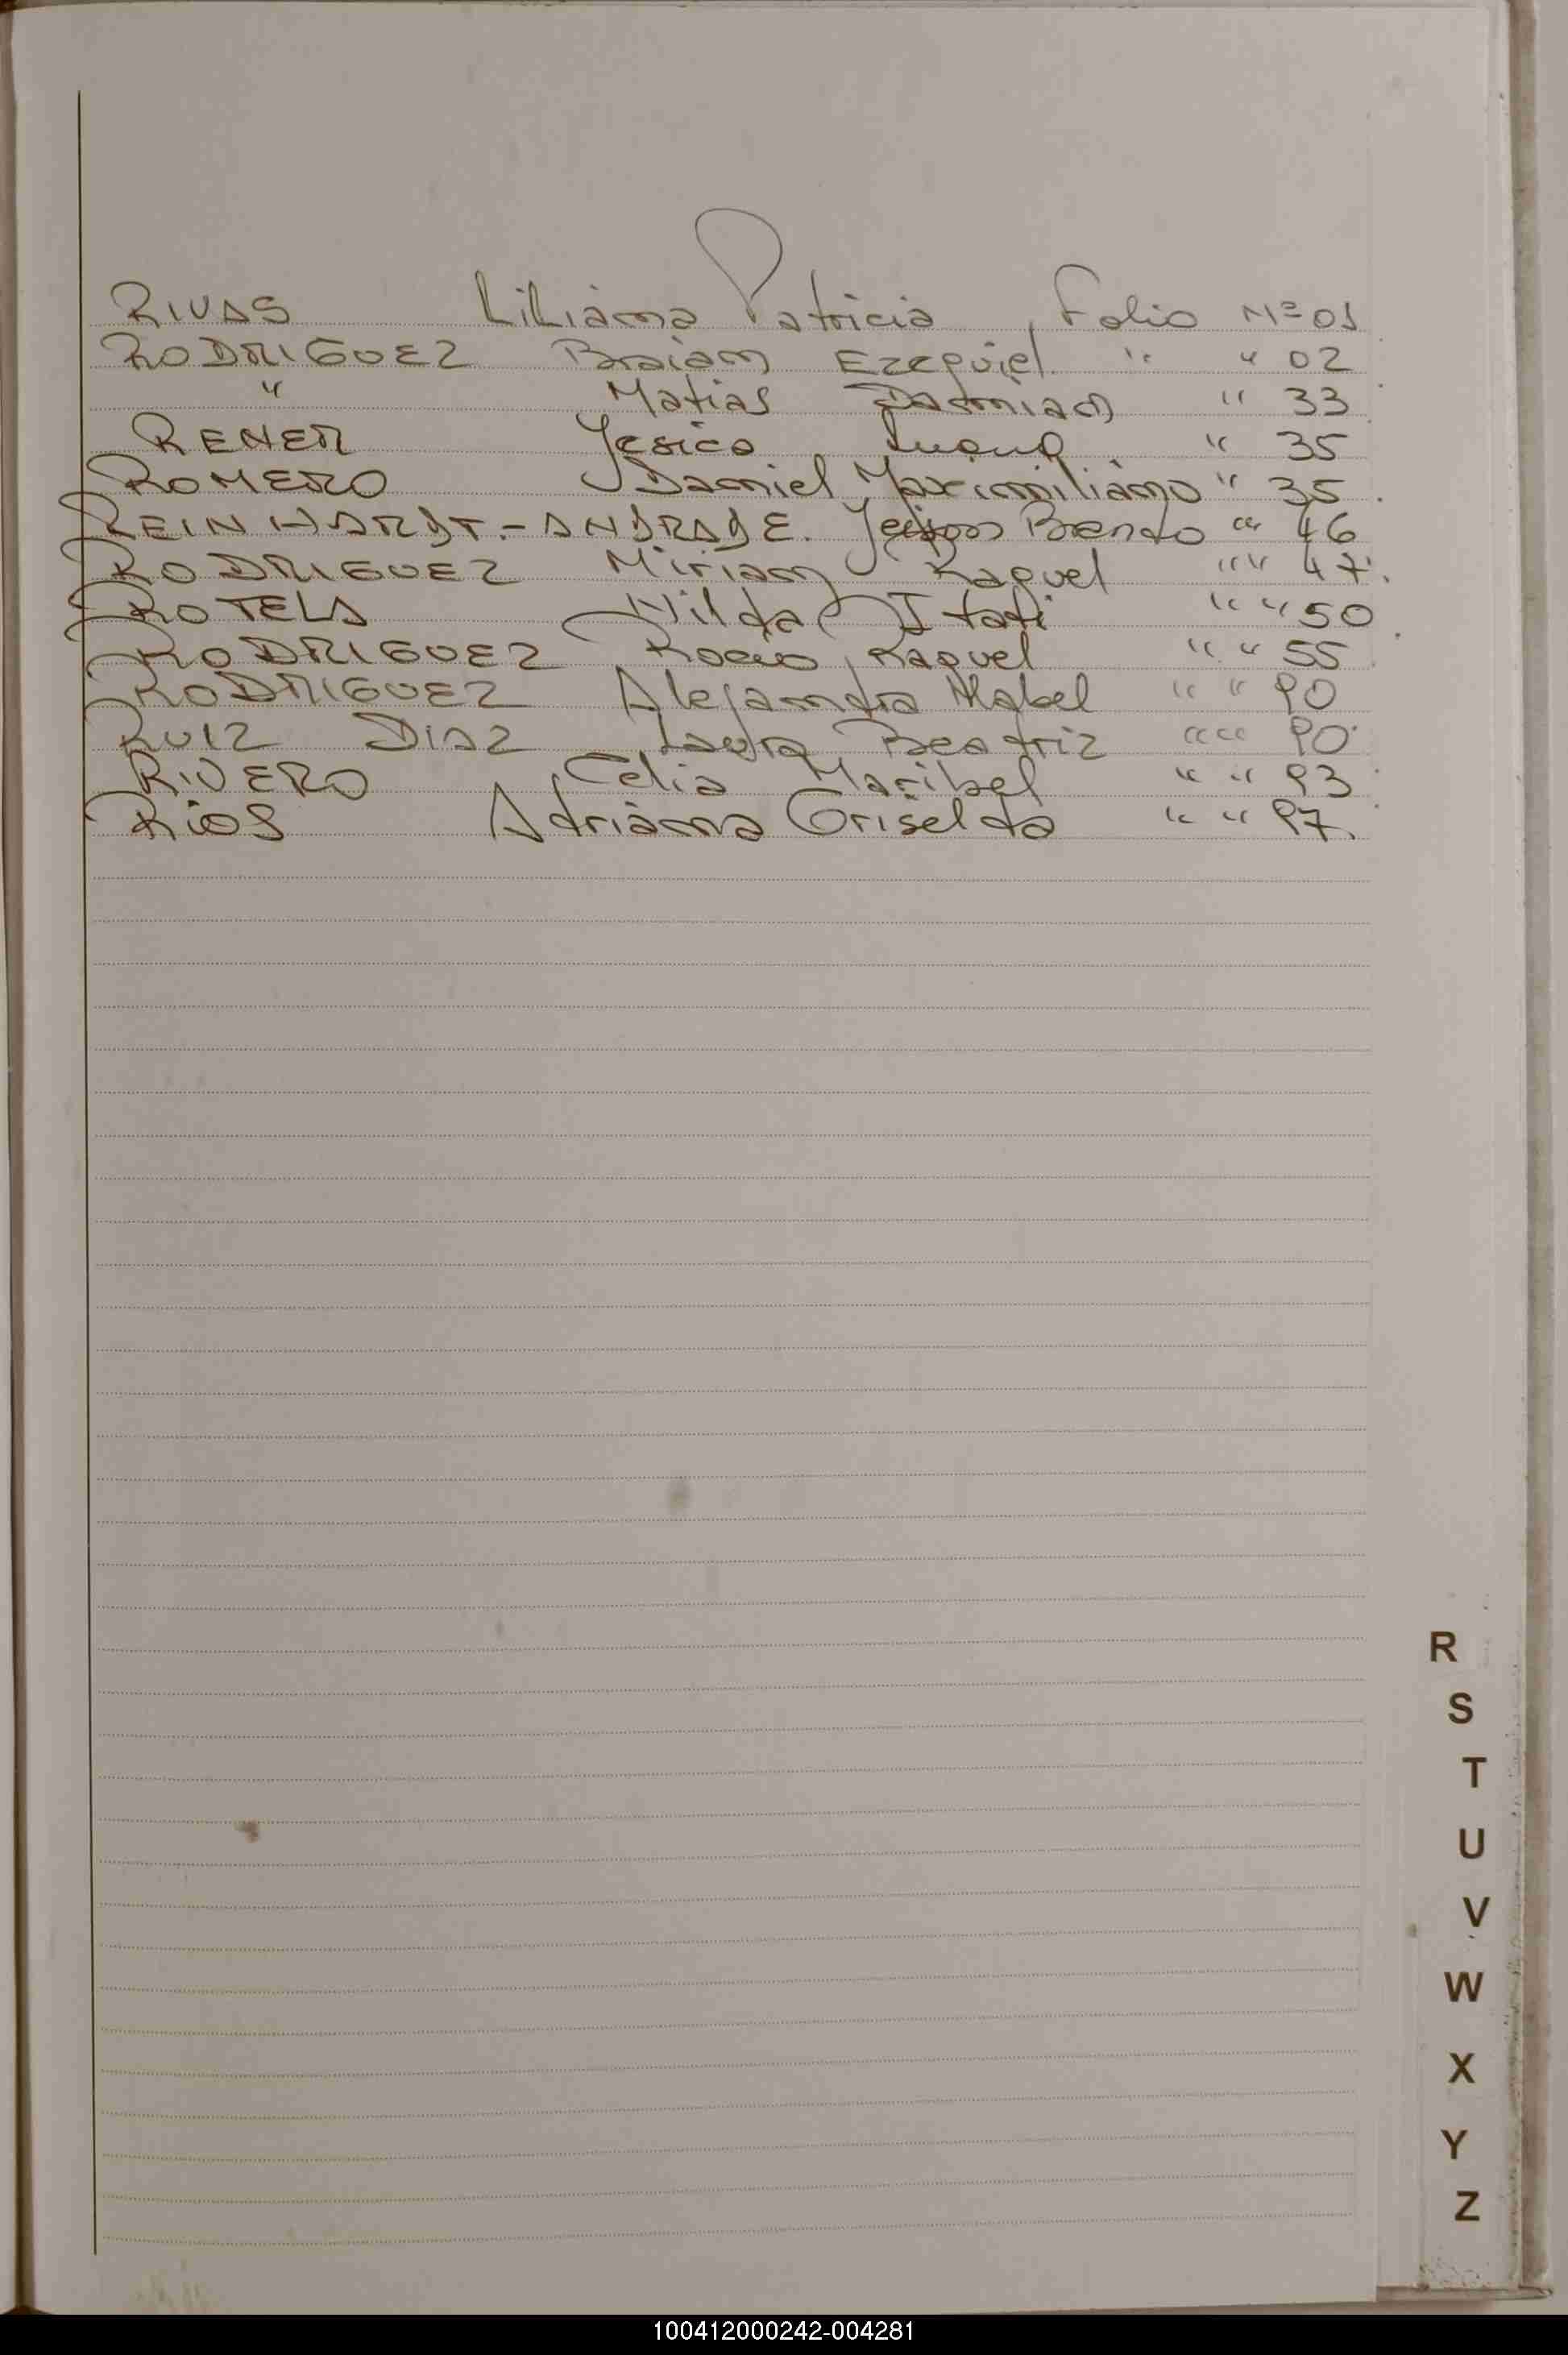 RIVAS Liliana Patricia, Folio Nº 01
RODRIGUEZ Braian Ezequiel. " " 02
" Matias Damian " 33
RENER Yesica " 35
ROMERO Daniel Maximiliano " 35.
REINHARDT.-ANDRADE. "" 46
RODRIGUEZ Miriam Raquel "" 47.
ROTELA Hilda Itati " " 50
RODRIGUEZ Rocio Raquel " " 55
RODRIGUEZ Alejandra Mabel " " 90
RUIZ DIAZ Laura Beatriz "" 90
RIVERO Celia Maribel " " 93
Rios Adriana Griselda " " 97.
R
S
T
U
V
W
X
Y
Z
100412000242-004281